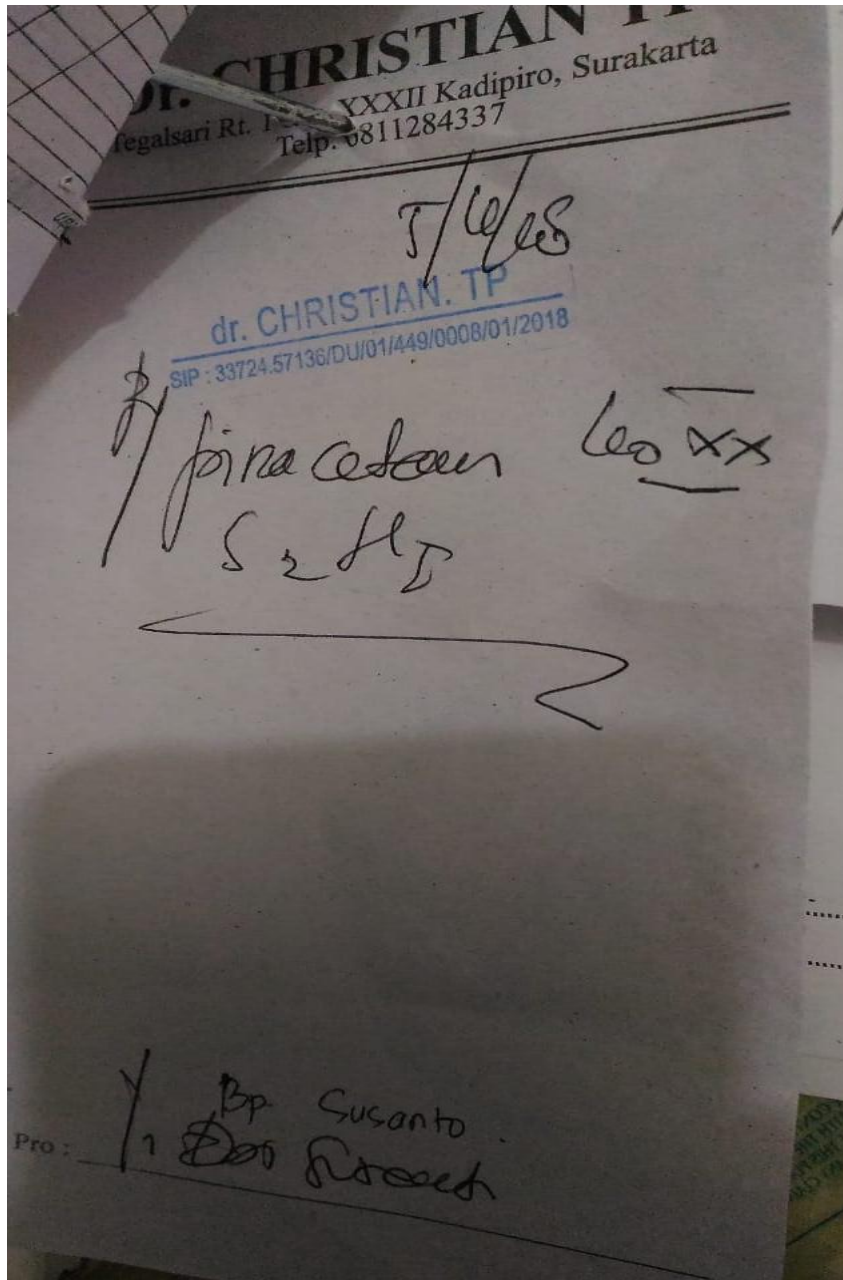 Dr. CHRISTIAN TP
Tegalsari Rt. 1 XXXII Kadipiro, Surakarta
Telp. 0811284337
dr. CHRISTIAN. TP
SIP : 33724.57136/DU/01/449/0008/01/2018
R/ piracetam XX
S 2 dd I
Bp. Susanto
Pro :